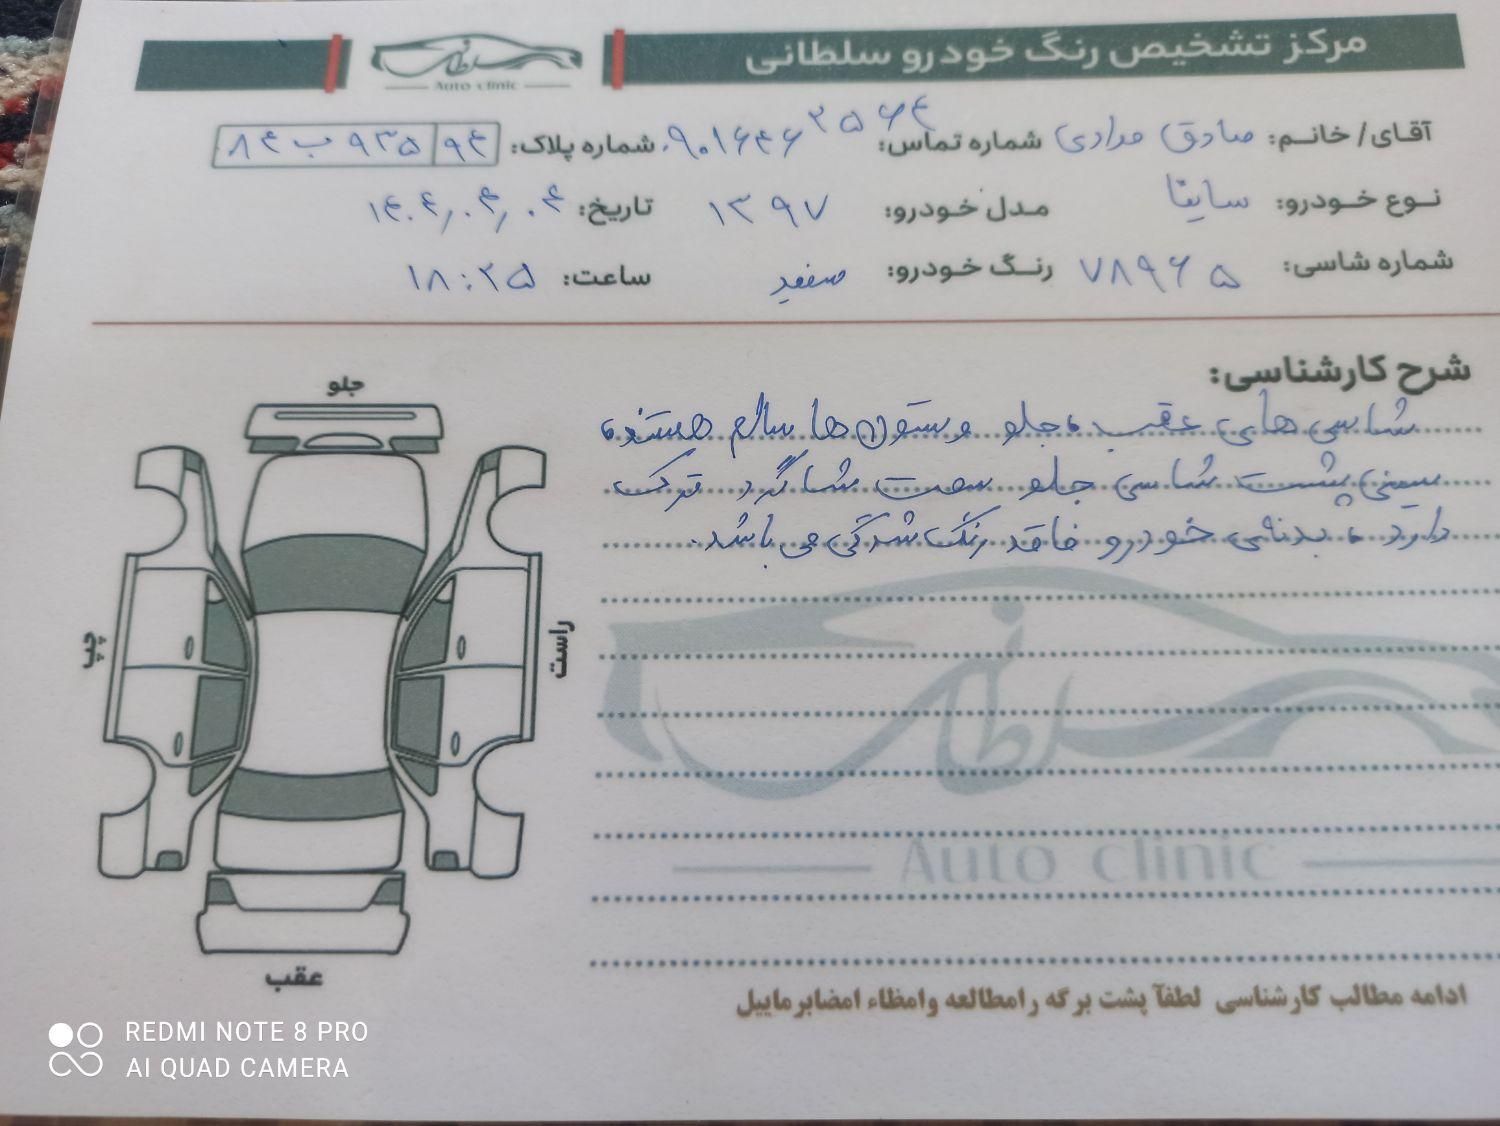 مرکز تشخیص رنگ خودرو سلطانی
سلطانی
Auto clinic
آقای/ خانم: صادق مرادی شماره تماس: ۰۹۰۱۶۴۶۳۵۶۴ شماره پلاک: ۸۴ ب ۹۳۵ ۹۴
نوع خودرو: ساینا مدل خودرو: ۱۳۹۷ تاریخ: ۱۴۰۴/۰۴/۰۴
شماره شاسی: ۷۸۹۶۵ رنگ خودرو: سفید ساعت: ۱۸:۲۵
شرح کارشناسی:
شاسی های عقب، جلو و ستون ها سالم هستند،
سینی پشت شاسی جلو سمت شاگرد ترک
دارد، بدنه ی خودرو فاقد رنگ شدگی می باشد.
جلو
چپ
راست
عقب
سلطانی
Auto clinic
ادامه مطالب کارشناسی لطفآ پشت برگه رامطالعه وامظاء امضابرماییل
REDMI NOTE 8 PRO
AI QUAD CAMERA